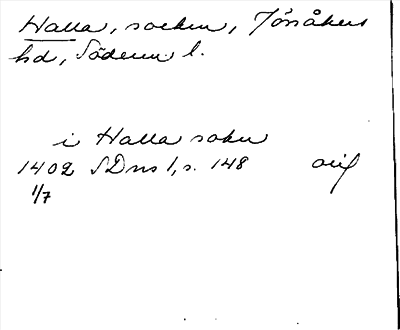 Halla, socken, Jönåkers
hd, Söderm. l.
i Halla sokn
1402 SDns 1, s. 148 orig
1/7